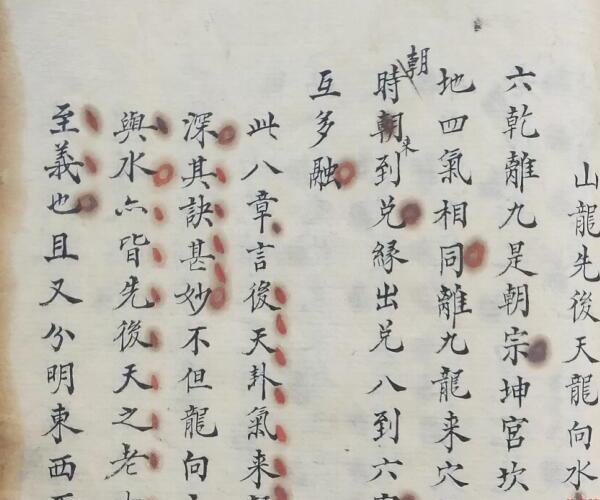 山龍先後天龍向水
六乾離九是朝宗坤宮坎
地四氣相同離九龍来穴
時朝朝来到兑緣出兑八到六
互多融
此八章言後天卦氣来
深其訣甚妙不但龍向
與水亦皆先後天之老
至義也且又分明東西